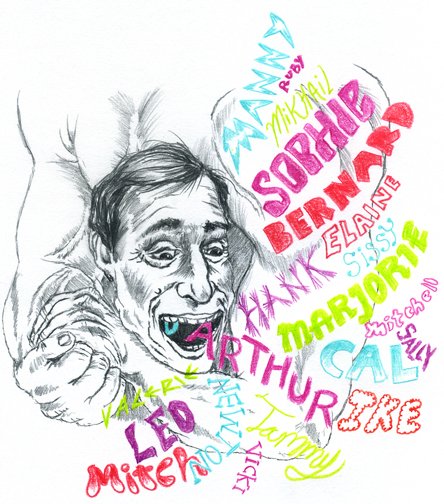 MANNY
RUBY
MiKHAiL
SOPHIE
BERNARD
ELAINE
SISSY
HANK
MARJORIE
mitchell
SALLY
ARTHUR
CAL
IKE
VALERIE
NEWTON
Tammy
LEO
VICKI
Mitch